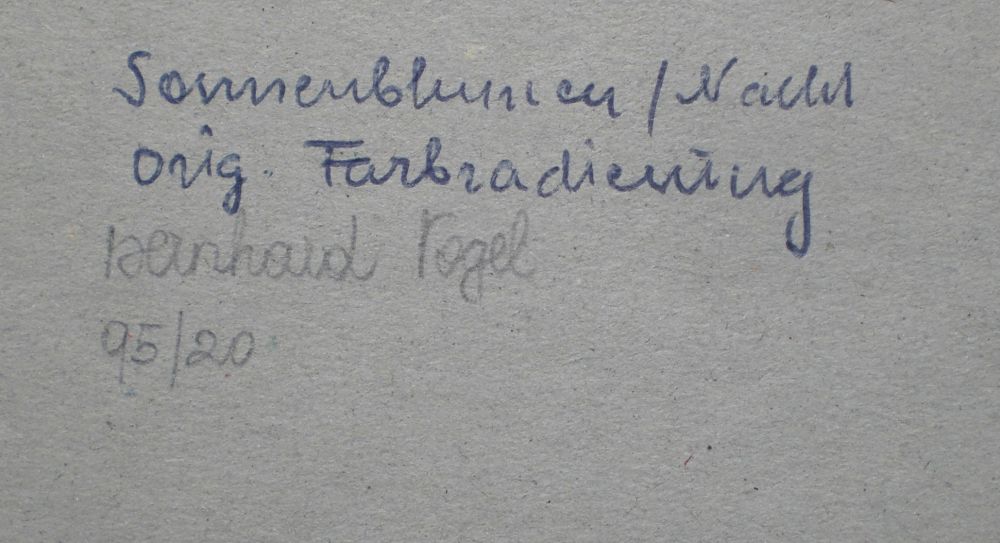 Sonnenblumen / Nacht
Orig. Farbradierung
Bernhard Vogel
95/20